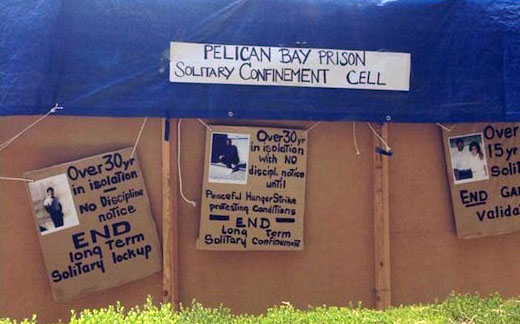 PELICAN BAY PRISON
SOLITARY CONFINEMENT CELL
Over 30 yr
in isolation
No Discipline
notice
END
long Term
Solitary lockup
Over 30 yr
in isolation
with NO
discipl. notice
until
Peaceful Hunger Strike
protesting Conditions
END
Long Term
Solitary Confinement
Over
15 yr
Solit
END GA
Valida